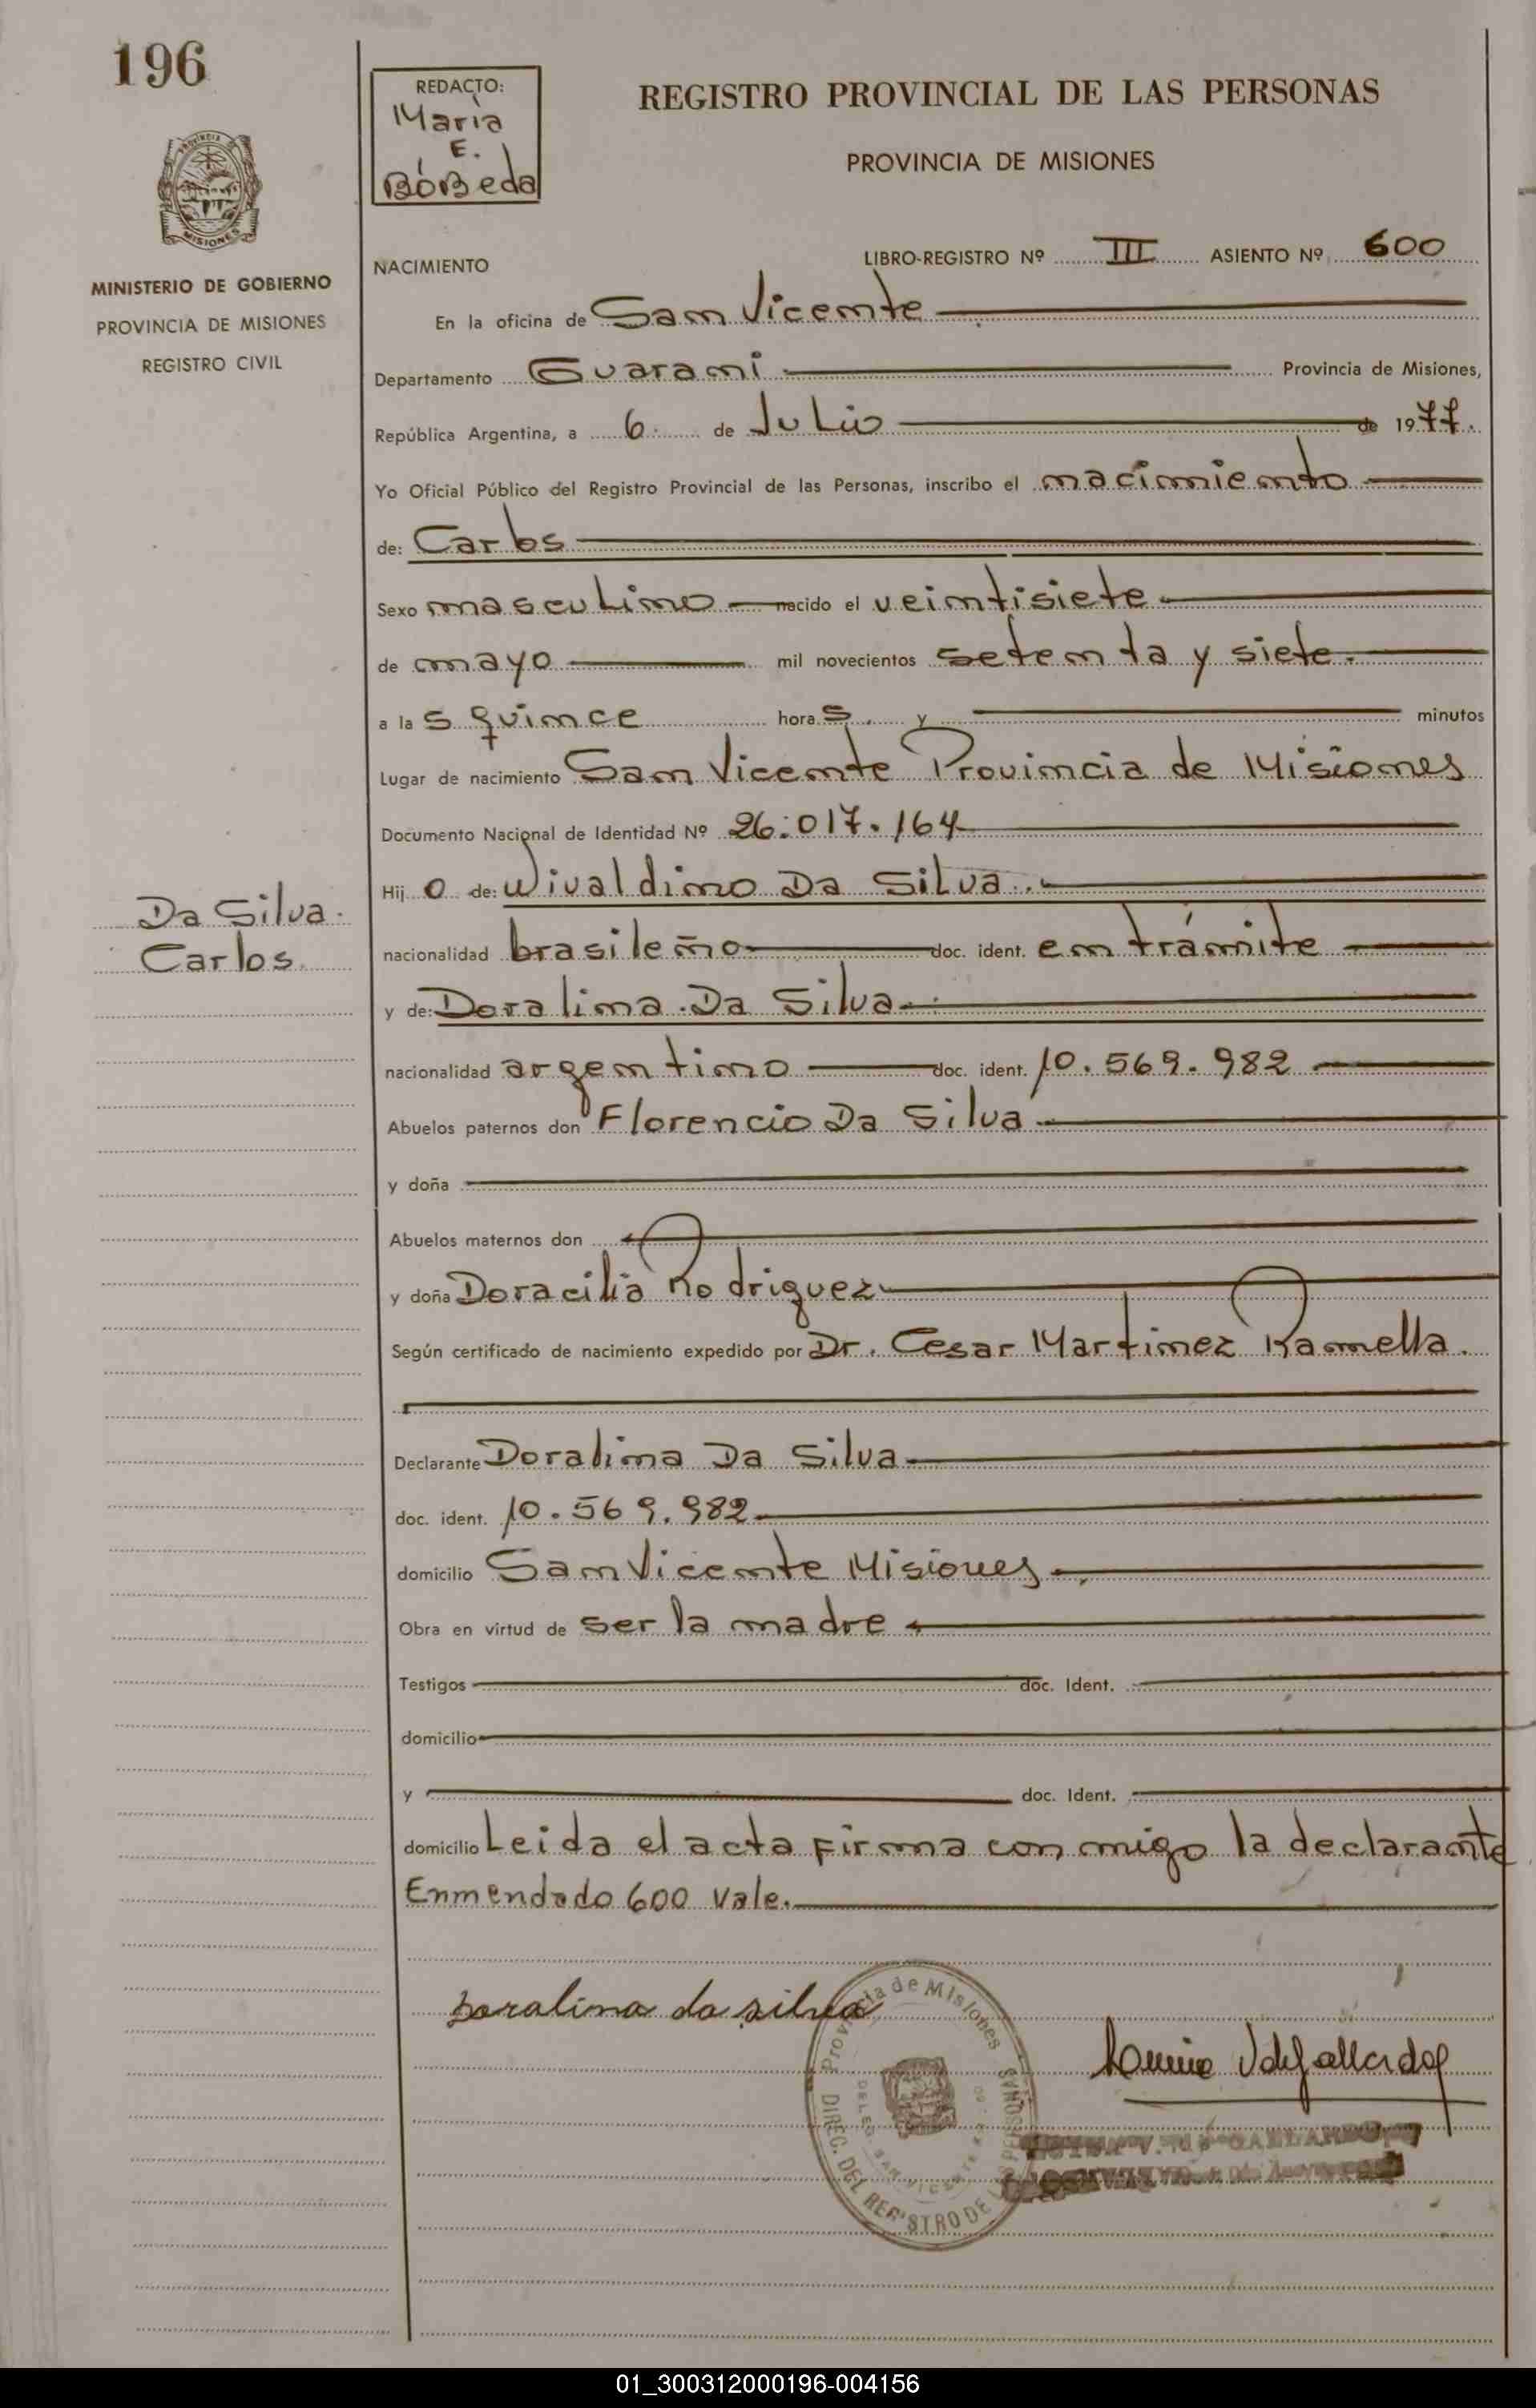 196
REDACTO:
María
E.
BóBeda
REGISTRO PROVINCIAL DE LAS PERSONAS
PROVINCIA DE MISIONES
MISIONES
MINISTERIO DE GOBIERNO
PROVINCIA DE MISIONES
REGISTRO CIVIL
NACIMIENTO
LIBRO-REGISTRO Nº III ASIENTO Nº 600
En la oficina de San Vicente
Departamento Guarani Provincia de Misiones,
República Argentina, a 6 de Julio de 1977.
Yo Oficial Público del Registro Provincial de las Personas, inscribo el nacimiento
de: Carlos
Sexo masculino nacido el veintisiete
de mayo mil novecientos setenta y siete.
a las quince horas y minutos
Lugar de nacimiento San Vicente Provincia de Misiones
Documento Nacional de Identidad Nº 26.017.164
Hijo de: Wivaldino Da Silva
Da Silva.
Carlos
nacionalidad brasileño doc. ident. en trámite
y de: Doralina Da Silva
nacionalidad argentino doc. ident. 10.569.982
Abuelos paternos don Florencio Da Silva
y doña
Abuelos maternos don
y doña Doracilia Rodriguez
Según certificado de nacimiento expedido por Dr. Cesar Martinez Ramella.
Declarante Doralina Da Silva
doc. ident. 10.569.982
domicilio San Vicente Misiones
Obra en virtud de ser la madre
Testigos doc. Ident.
domicilio
y doc. Ident.
domicilio Leida el acta firma con migo la declarante
Enmendado 600 Vale.
Doralina da silva
Provincia de Misiones
DIREC. DEL REGISTRO DE
01_300312000196-004156